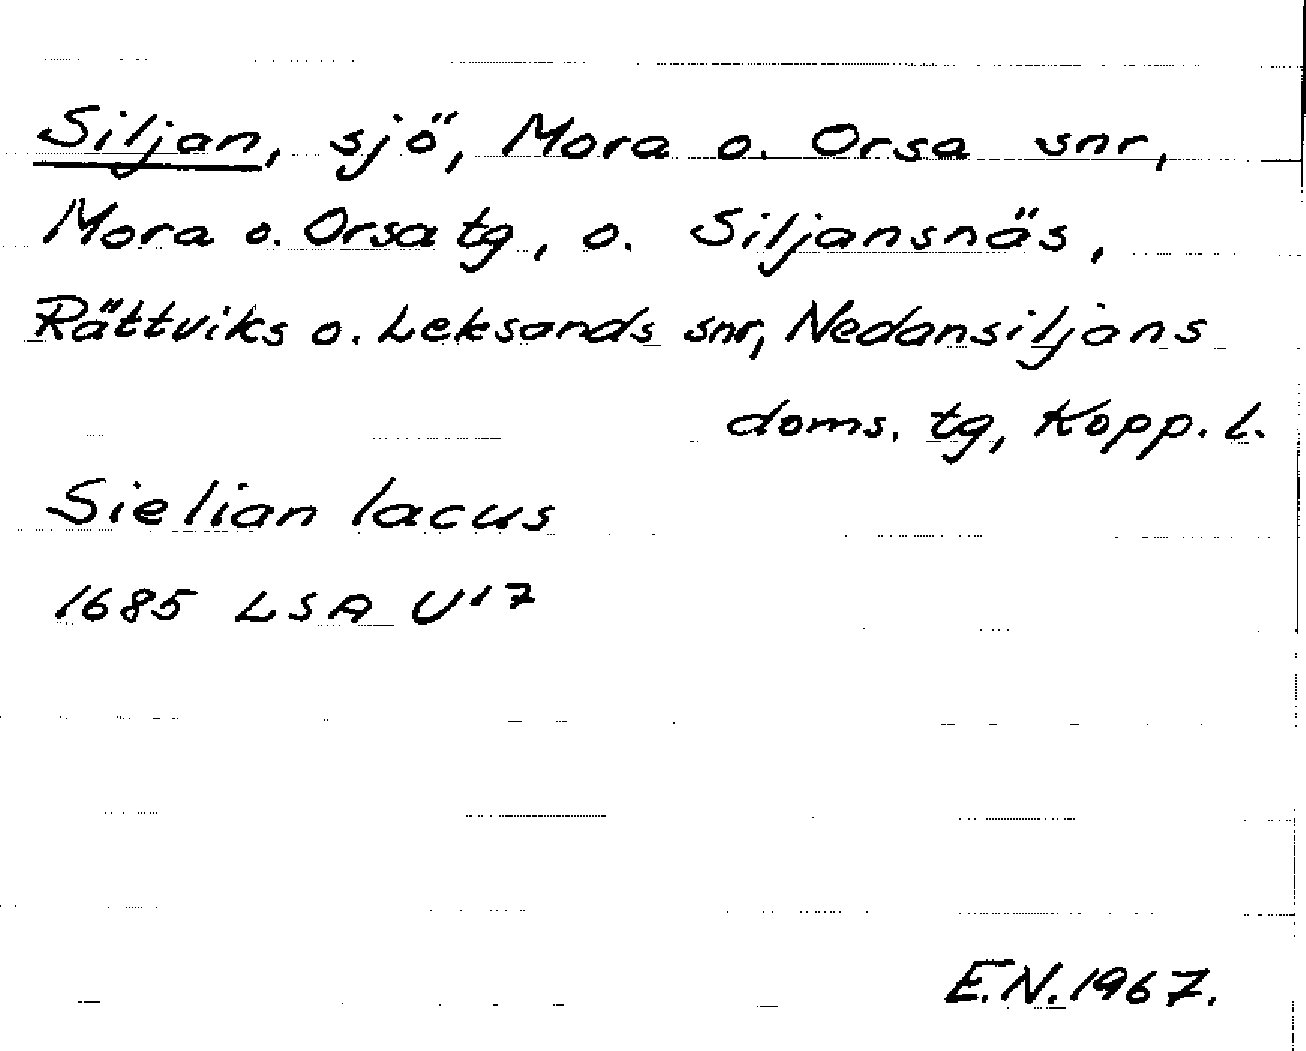 Siljan, sjö, Mora o. Orsa snr,
Mora o. Orsa tg, o. Siljansnäs,
Rättviks o. Leksands snr, Nedansiljans
doms. tg, Kopp. l.
Sielian lacus
1685 LSA U17
E.N. 1967.